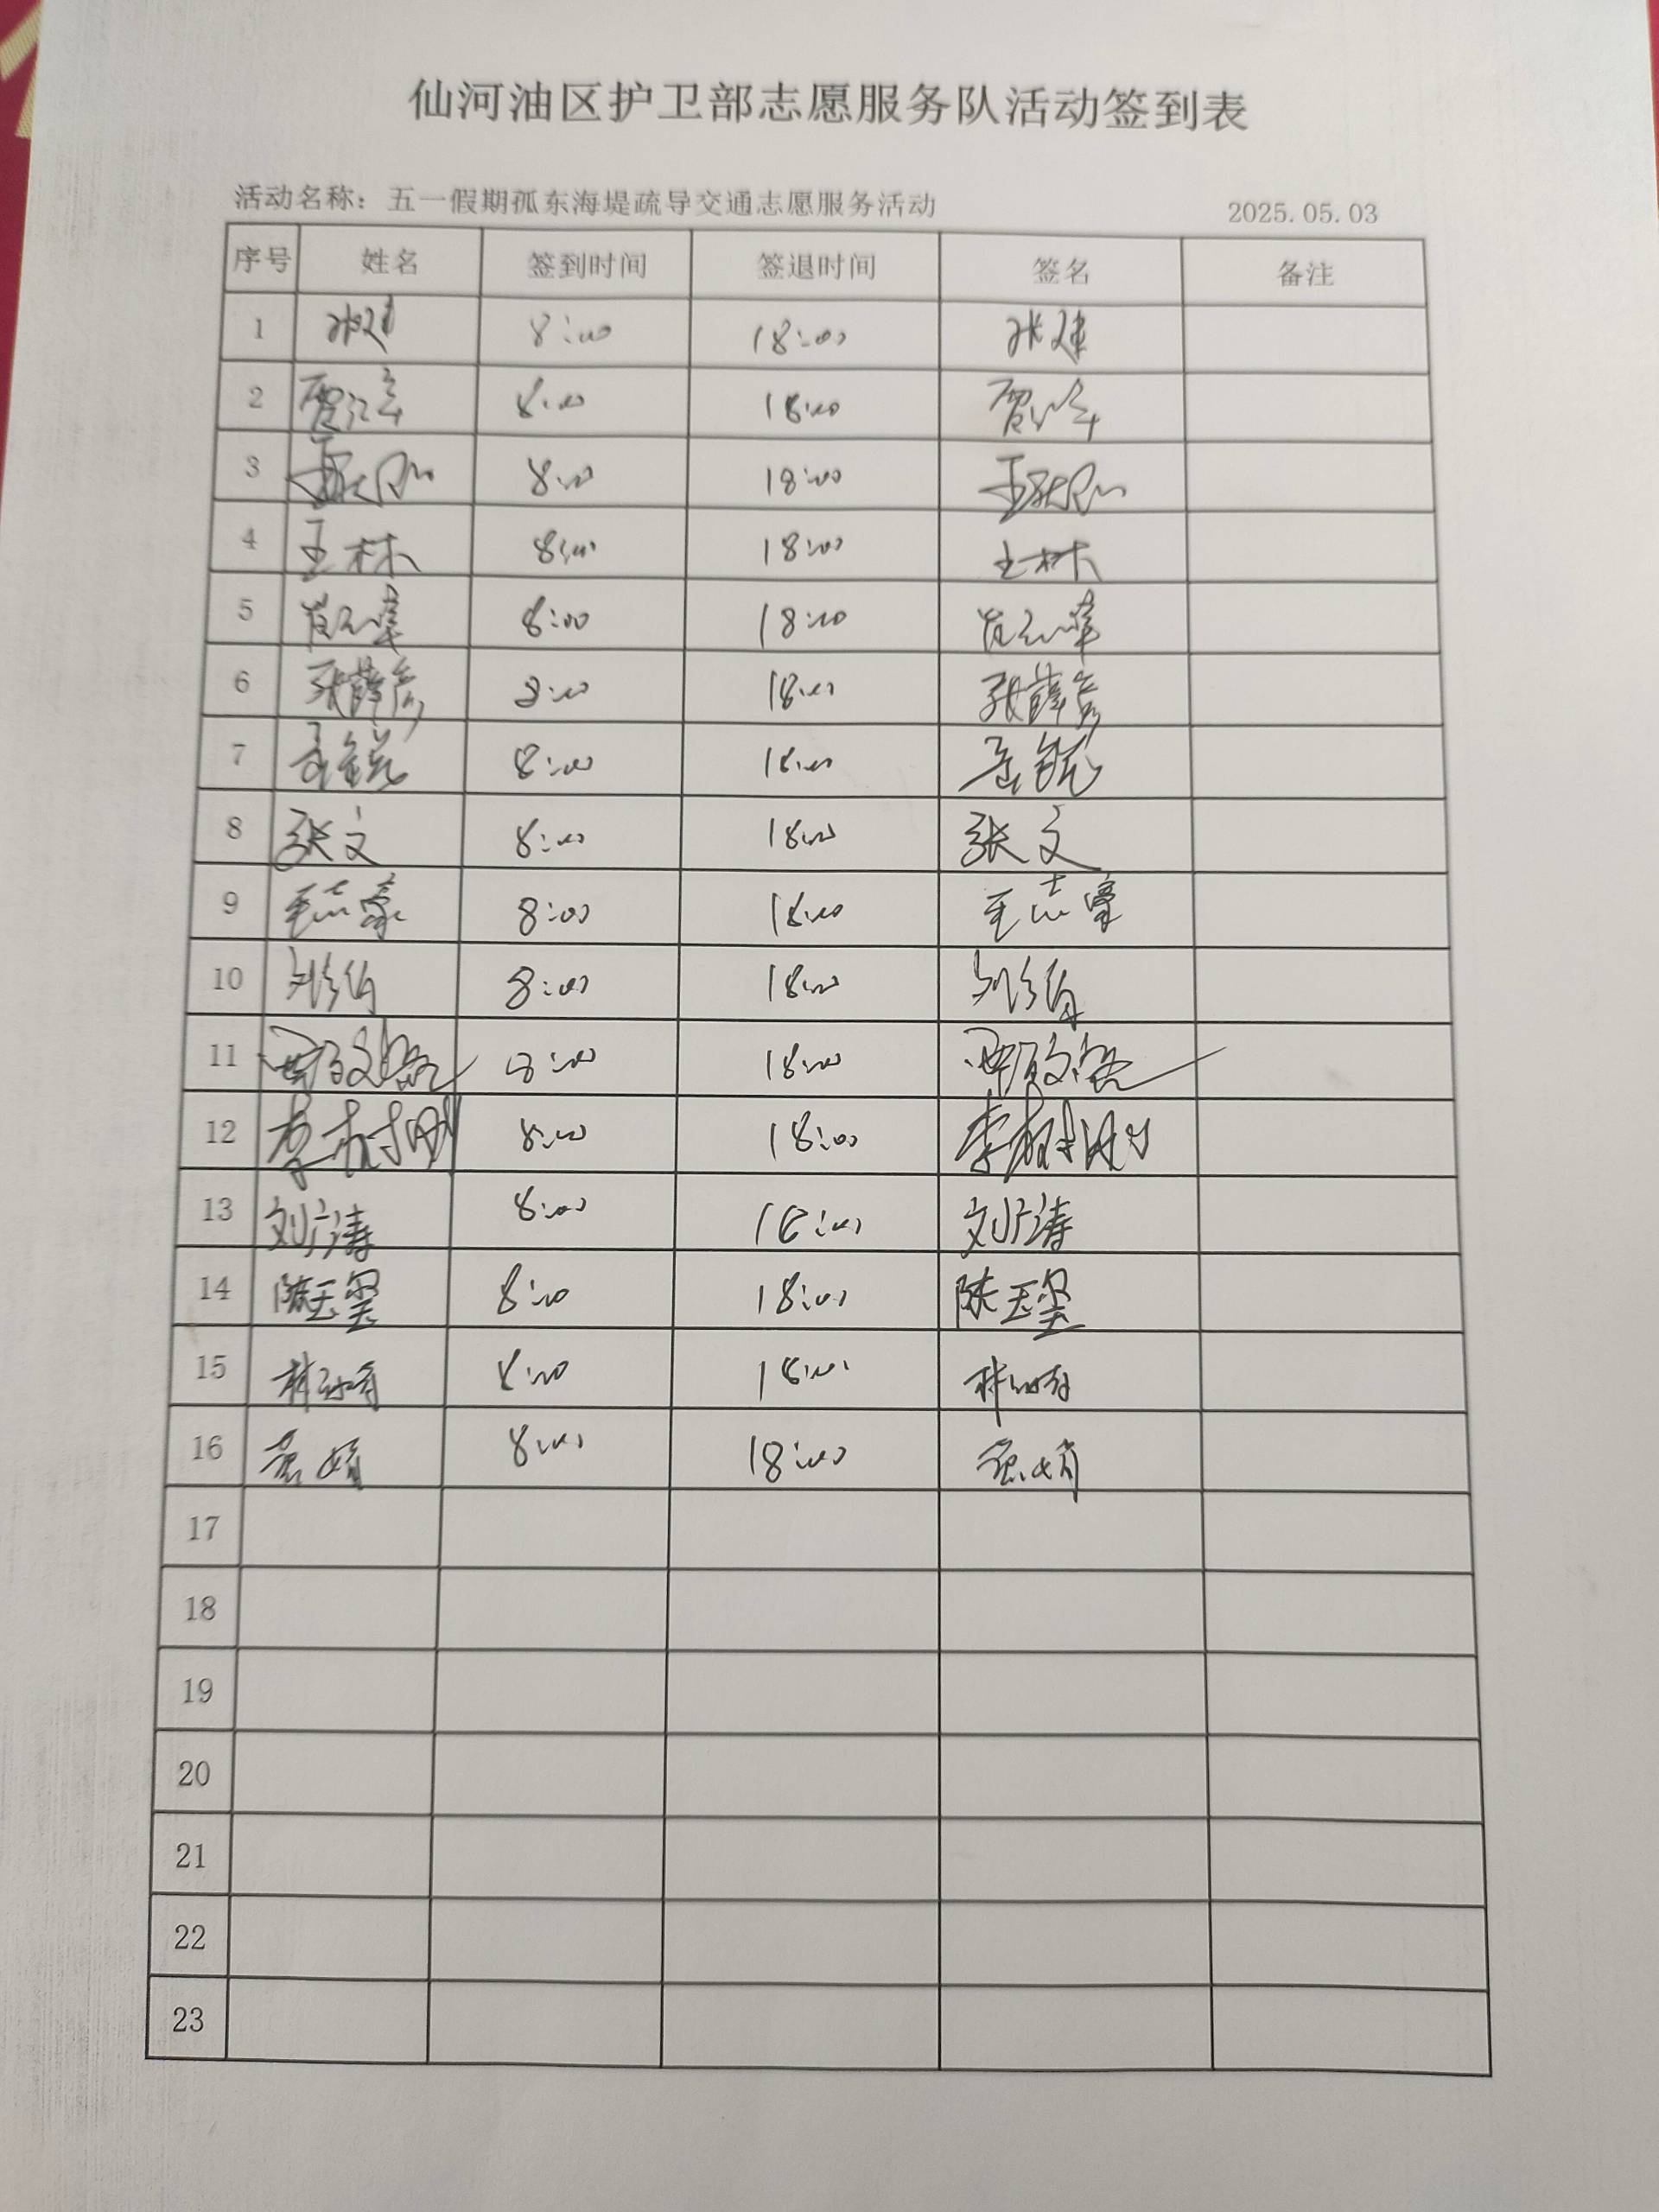 仙河油区护卫部志愿服务队活动签到表
活动名称：五一假期孤东海堤疏导交通志愿服务活动 2025.05.03
序号 姓名 签到时间 签退时间 签名 备注
1 张建 8:00 18:00 张建
2 8:00 18:00
3 8:00 18:00
4 王林 8:00 18:00 王林
5 8:00 18:00
6 张薛彦 8:00 18:00 张薛彦
7 8:00 18:00
8 张文 8:00 18:00 张文
9 王志豪 8:00 18:00 王志豪
10 8:00 18:00
11 8:00 18:00
12 李树刚 8:00 18:00 李树刚
13 刘广涛 8:00 18:00 刘广涛
14 陈玉玺 8:00 18:00 陈玉玺
15 8:00 18:00
16 8:00 18:00
17
18
19
20
21
22
23